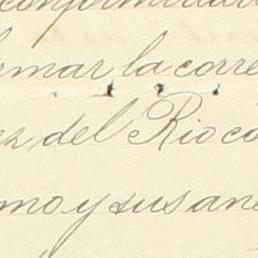 conformidad
rmar la corre
ez del Rio co
mo y sus ane